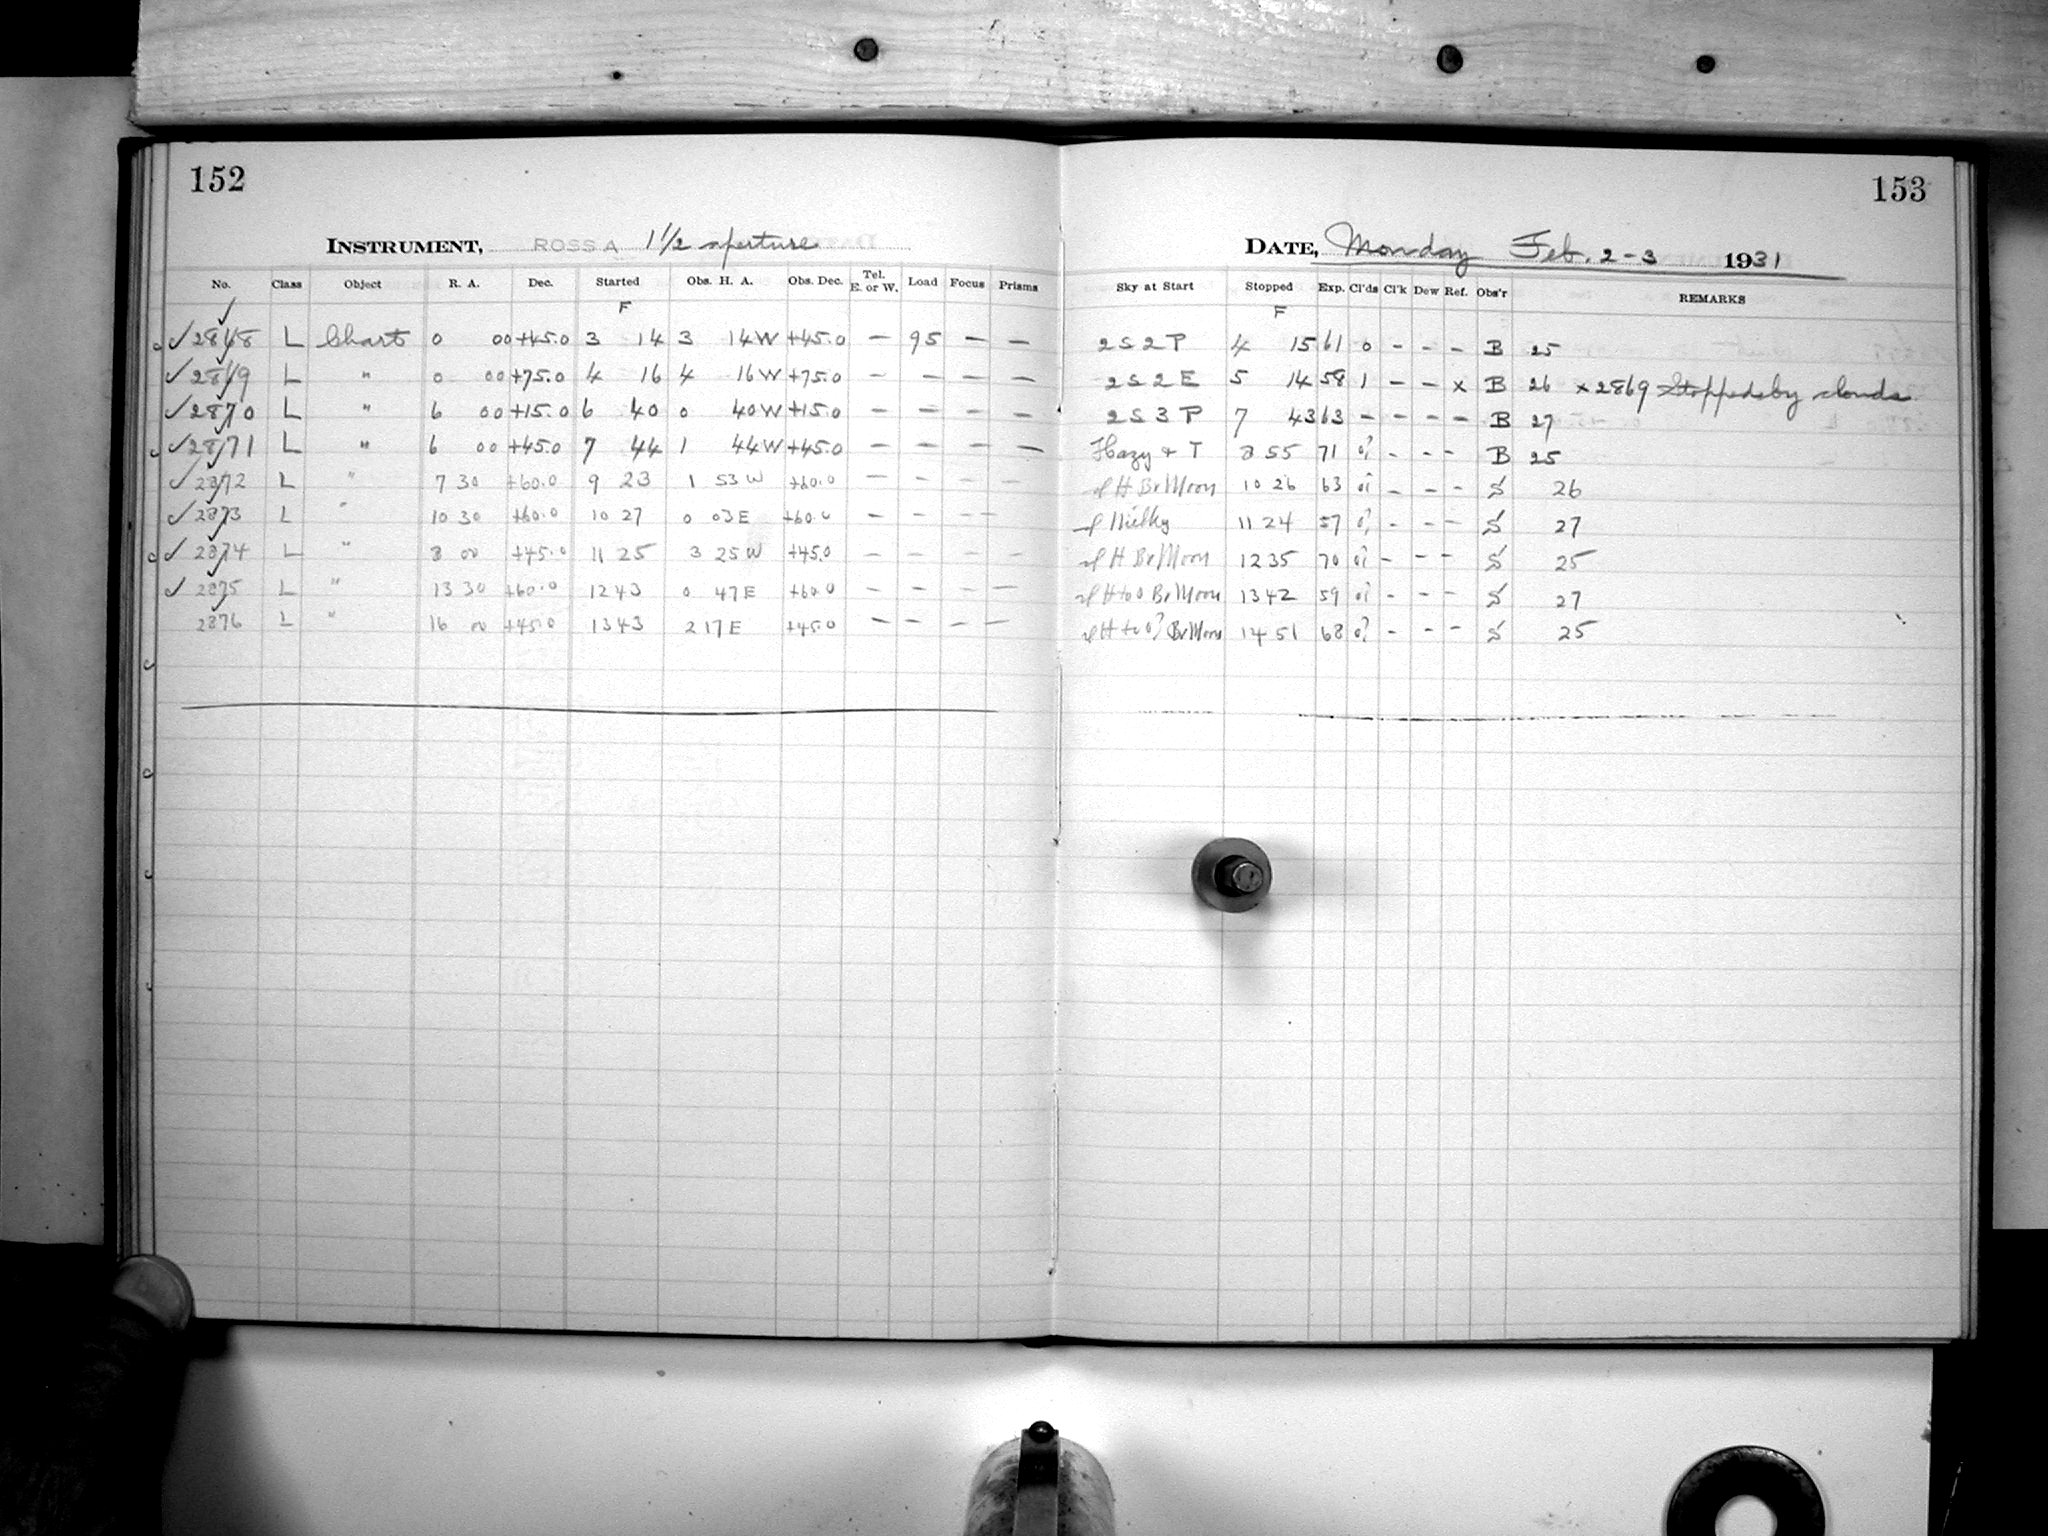 152
153
INSTRUMENT, ROSS A 1 1/2 aperture
DATE, Monday Feb. 2-3 1931
No. Class Object R. A. Dec. Started Obs. H. A. Obs. Dec. Tel. E. or W. Load Focus Prisms Sky at Start Stopped Exp. Cl'ds Cl'k Dew Ref. Obs'r REMARKS
F F
✓ 2868 L Chart 0 00 +45.0 3 14 3 14 W +45.0 — 95 — — 2 S 2 P 4 15 61 0 - - - B 25
✓ 2869 L " 0 00 +75.0 4 16 4 16 W +75.0 — — — — 2 S 2 E 5 14 58 1 - - x B 26 x 2869 Stopped by clouds
✓ 2870 L " 6 00 +15.0 6 40 0 40 W +15.0 — — — — 2 S 3 P 7 43 63 - - - - B 27
✓ 2871 L " 6 00 +45.0 7 44 1 44 W +45.0 — — — — Hazy + T 8 55 71 0? - - - B 25
✓ 2872 L " 7 30 +60.0 9 23 1 53 W +60.0 — — — — H Br Moon 10 26 63 0? - - - S 26
✓ 2873 L " 10 30 +60.0 10 27 0 03 E +60.0 — — — — Milky 11 24 57 0? - - - S 27
✓ 2874 L " 8 00 +45.0 11 25 3 25 W +45.0 — — — — H Br Moon 12 35 70 0? - - - S 25
✓ 2875 L " 13 30 +60.0 12 43 0 47 E +60.0 — — — — H to 0 Br Moon 13 42 59 0? - - - S 27
2876 L " 16 00 +45.0 13 43 2 17 E +45.0 — — — — H to 0? Br Moon 14 51 68 0? - - - S 25